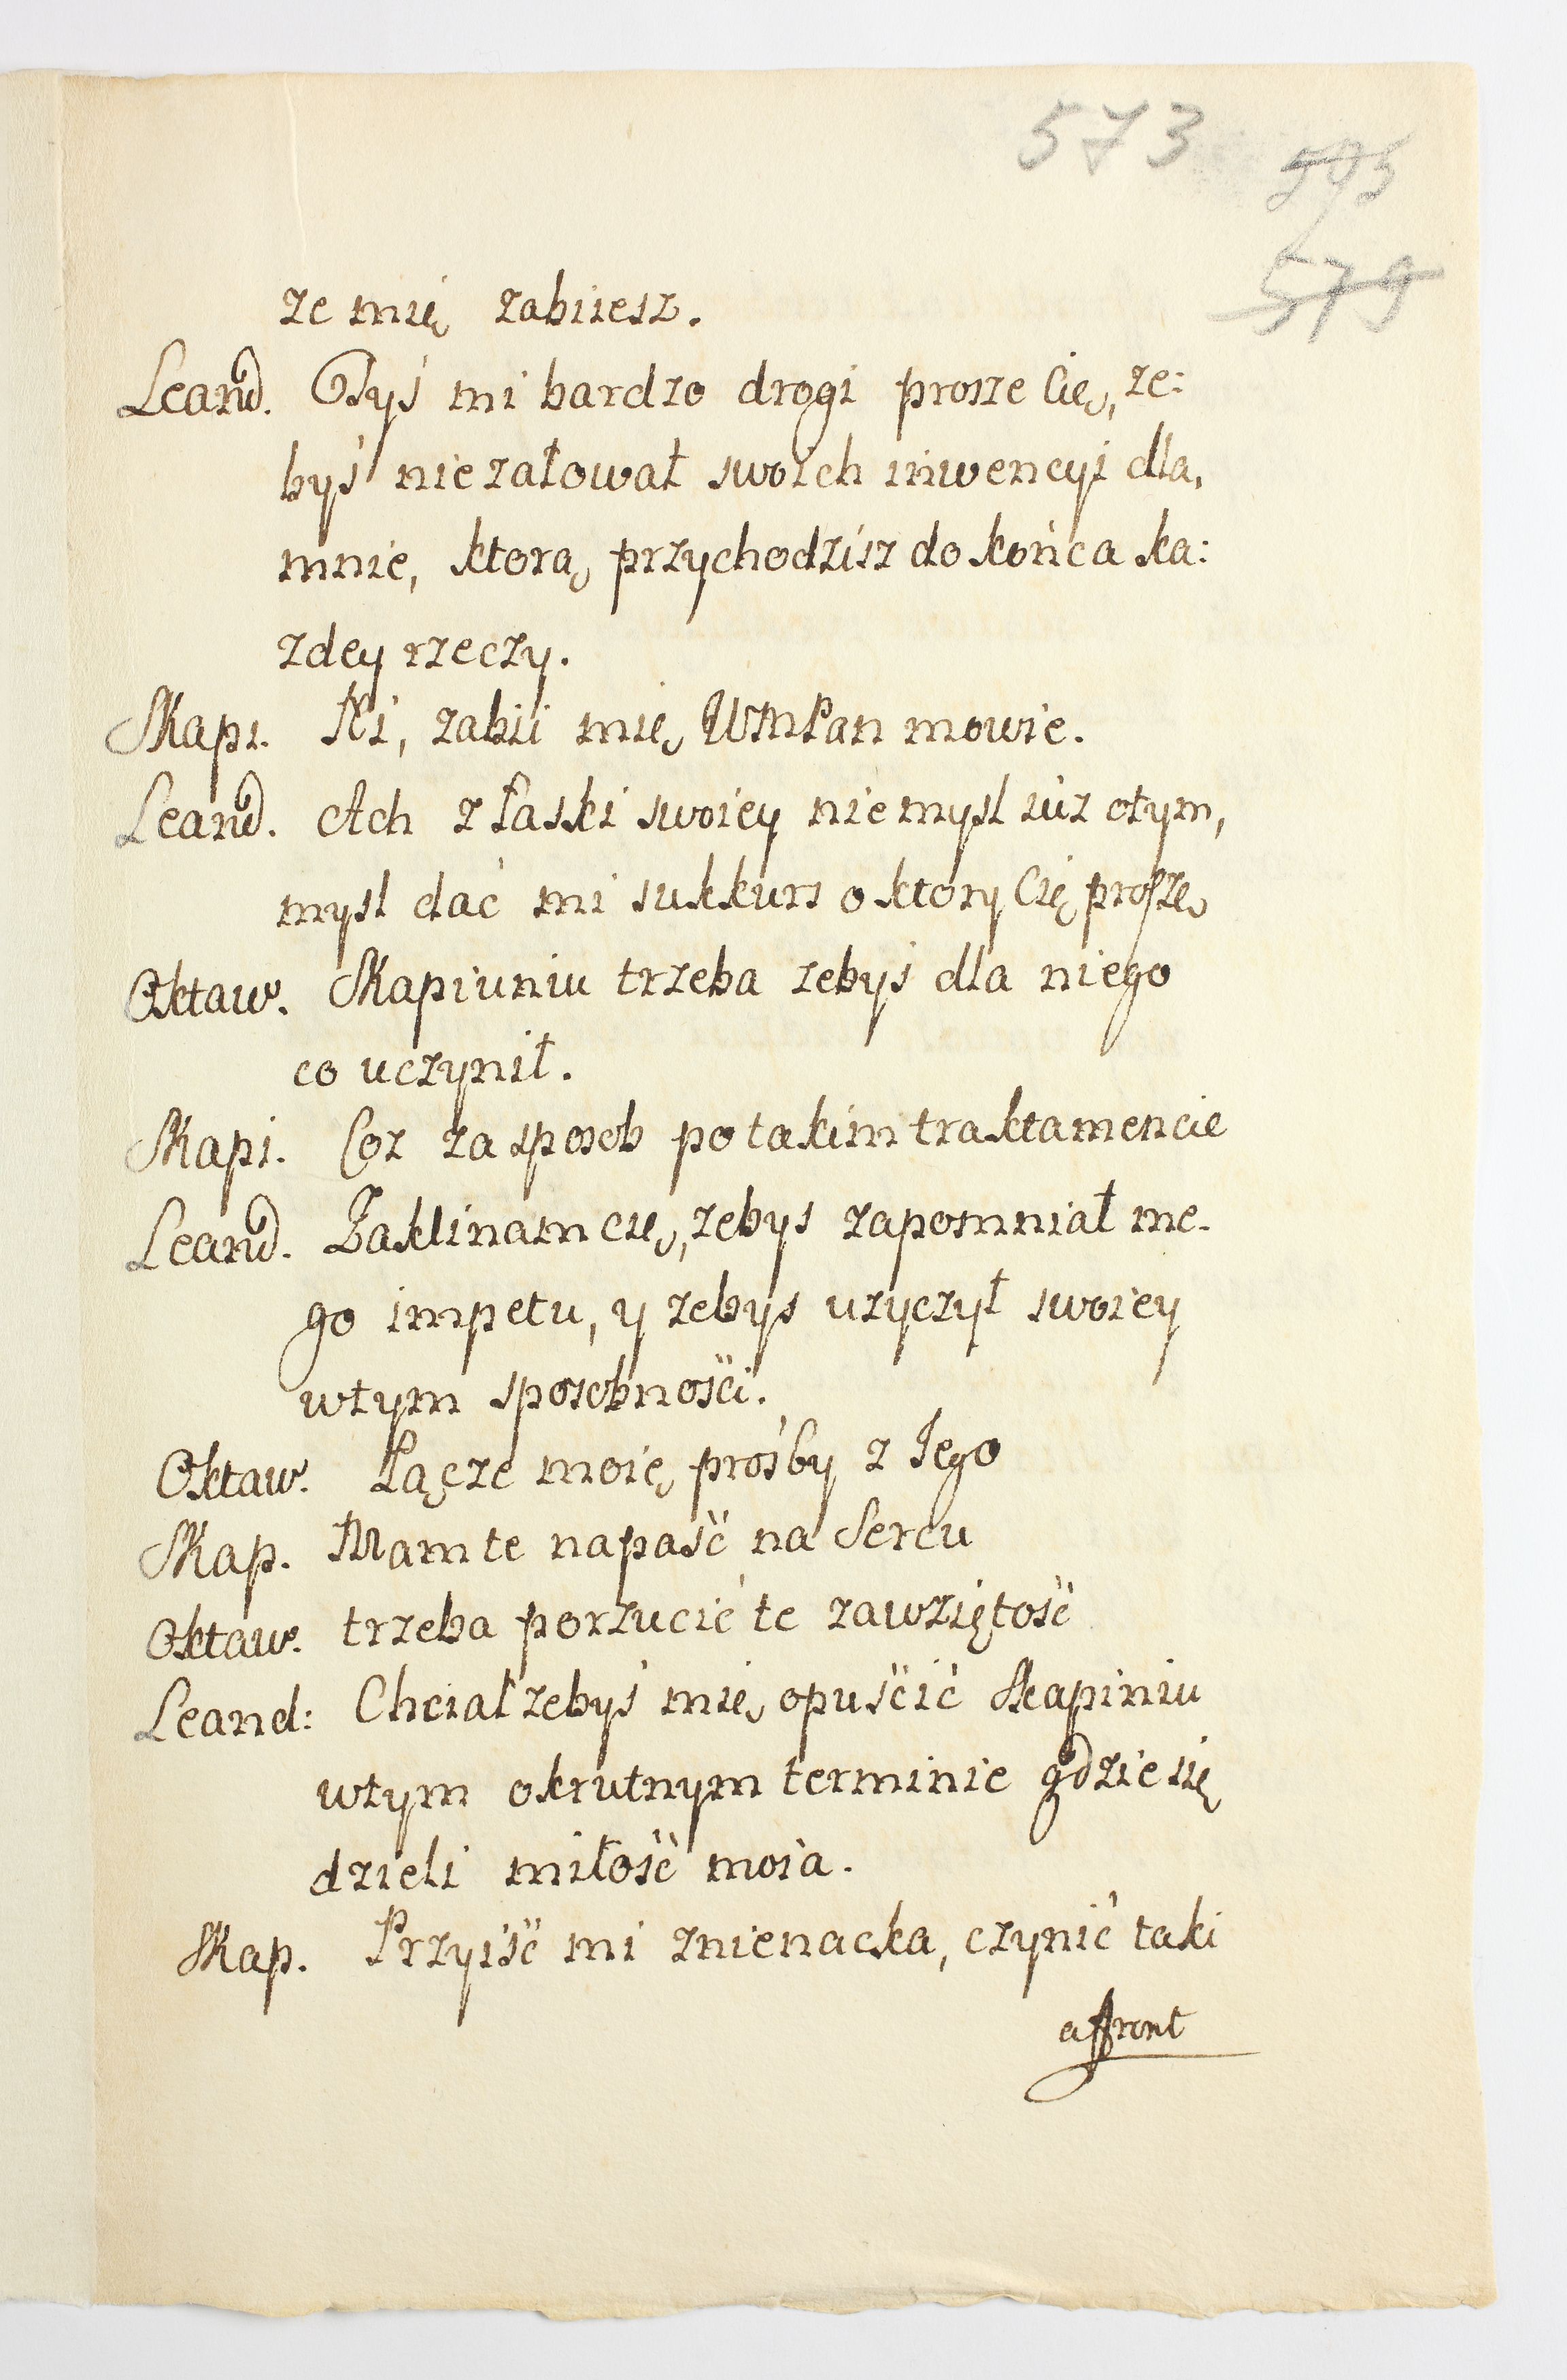 573
593
579
ze mię zabiiesz.
Leand. Tyś mi bardzo drogi prosze Cię, ze:
byś nie załował swoich inwencyi dla,
mnie, ktorą przychodzisz do końca ka:
zdey rzeczy.
Skapi. Ni, zabii mię WMPan mowie.
Leand. Ach z łaski swoiey nie mysl iuz otym,
mysl dać mi sukkurs o ktory Cię proszę
Oktaw. Skapiuniu trzeba zebyś dla niego
co uczynił.
Skapi. Coz za sposob po takim traktamencie
Leand. Zaklinam cię, zebys zapomniał me-
go impetu, y zebys uzyczył swoiey
wtym sposobnośći.
Oktaw. Łączę moię prośby z Jego
Skap. Mam te napaść na Sercu
Oktaw. trzeba porzucić te zawziętość
Leand: Chciał zebyś mię opuśćić Skapiniu
wtym okrutnym terminie gdzie się
dzieli miłość moia.
Skap. Przyiść mi znienacka, czynić taki
affront